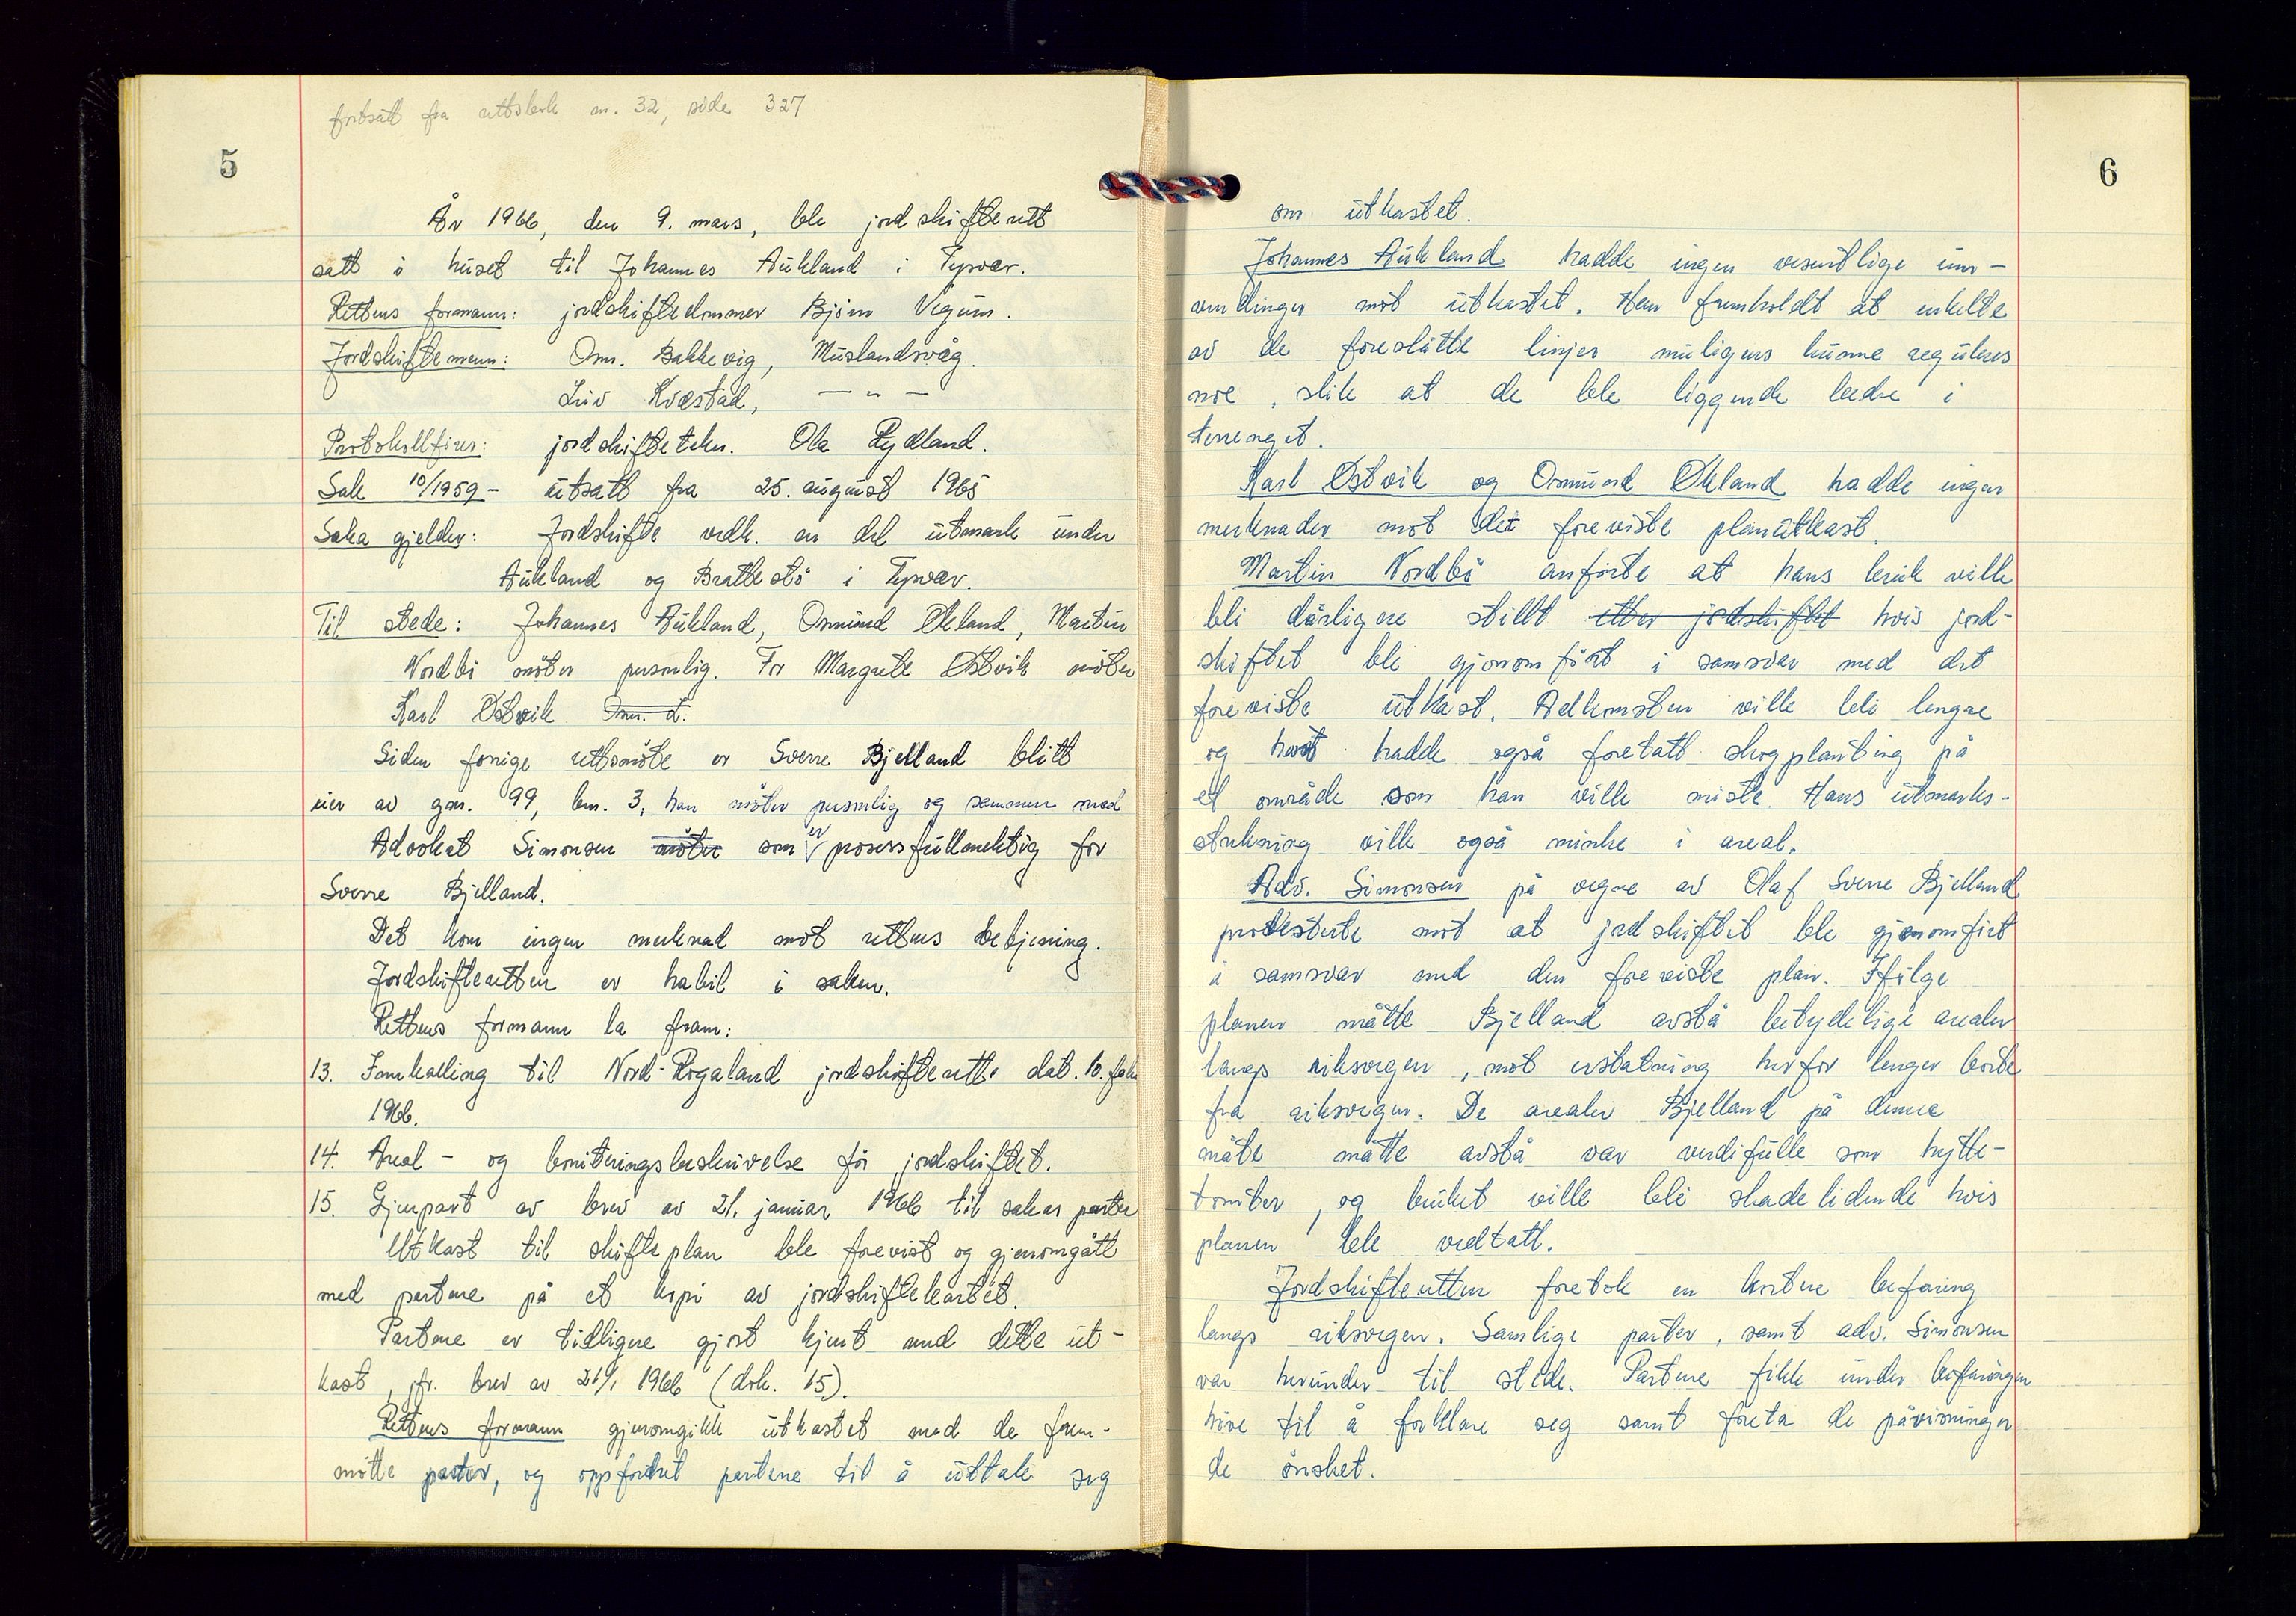 fortsatt fra rettsbok nr. 32, side 327
5
År 1966, den 9. mars, ble jordskifterett
satt i huset til Johannes Aukland i Tysvær.
Rettens formann: jordskiftedommer Bjørn Vegum.
Jordskiftemenn: Osm. Bakkevig, Muslandsvåg.
Liv Kvæstad, — " —
Protokollfører: jordskiftetekn. Ola Rydland.
Sak 10/1959 - utsatt fra 25. august 1965
Saka gjelder: Jordskifte vedk. en del utmark under
Aukland og Brattestø i Tysvær.
Til stede: Johannes Aukland, Osmund Økland, Martin
Nordbø møter personlig. For Margrete Østvik møter
Karl Østvik
Siden forrige rettsmøte er Sverre Bjelland blitt
eier av gnr. 99, bnr. 3, han møter personlig og sammen med
Advokat Simonsen møter som er prosessfullmektig for
Sverre Bjelland.
Det kom ingen merknad mot rettens betjening.
Jordskifteretten er habil i saken.
Rettens formann la fram:
13. Innkalling til Nord-Rogaland jordskifterett. dat. 10. febr
1966.
14. Areal - og boniteringsbeskrivelse før jordskiftet.
15. Gjenpart av brev av 21. januar 1966 til sakas parter
Utkast til skifteplan ble forevist og gjenomgått
med partene på et kopi av jordskiftekartet.
Partene er tidligere gjort kjent med dette ut-
kast, jfr. brev av 21/1 1966 (dok. 15).
Rettens formann gjenomgikk utkastet med de frem-
møtte parter, og oppfordret partene til å uttale seg
6
om utkastet.
Johannes Aukland hadde ingen vesentlige inn-
vendinger mot utkastet. Han fremholdt at enkelte
av de foreslåtte linjer muligens kunne reguleres
noe, slik at de ble liggende bedre i
terrenget.
Karl Østvik og Osmund Økland hadde ingen
merknader mot det foreviste planutkast.
Martin Nordbø anførte at hans bruk ville
bli dårligere stillt etter jordskiftet hvis jord-
skiftet ble gjenomført i samsvar med det
foreviste utkast. Adkomsten ville bli lengre
og han hadde også foretatt skogplanting på
et område som han ville miste. Hans utmarks-
strekning ville også minke i areal.
Adv. Simonsen på vegne av Olaf Sverre Bjelland
protesterte mot at jordskiftet ble gjenomført
i samsvar med den foreviste plan. Ifølge
planen måtte Bjelland avstå betydelige arealer
langs riksvegen, mot erstatning herfor lenger borte
fra riksvegen. De arealer Bjelland på denne
måte måtte avstå var verdifulle som hytte-
tomter, og bruket ville bli skadelidende hvis
planen ble vedtatt.
Jordskifteretten foretok en kortere befaring
langs riksvegen. Samlige parter, samt adv. Simonsen
var herunder til stede. Partene fikk under befaringen
høve til å forklare seg samt foreta de påvisninger
de ønsket.